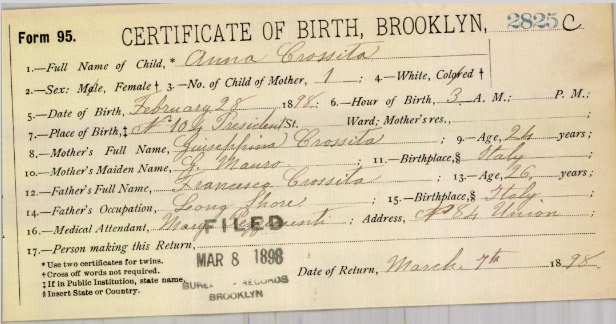 Form 95. CERTIFICATE OF BIRTH, BROOKLYN, 2825 C
1.—Full Name of Child,* Anna Crossita
2.—Sex: Male, Female † 3.—No. of Child of Mother, 1 ; 4.—White, Colored †
5.—Date of Birth, February 28 1898; 6.—Hour of Birth, 3 A. M.; P. M.;
7.—Place of Birth,‡ No 104 President St. Ward; Mother's res., ;
8.—Mother's Full Name, Giuseppina Crossita 9.—Age, 24 years;
10.—Mother's Maiden Name, G. Mauro ; 11.—Birthplace,§ Italy ;
12.—Father's Full Name, Francesco Crossita ; 13.—Age, 26 years;
14.—Father's Occupation, Long Shores ; 15.—Birthplace,§ Italy ;
16.—Medical Attendant, Mary ; Address, No 84 Union ;
17.—Person making this Return,
FILED
MAR 8 1898
BUREAU RECORDS
BROOKLYN
* Use two certificates for twins.
† Cross off words not required.
‡ If in Public Institution, state name.
§ Insert State or Country.
Date of Return, March 7th 1898.